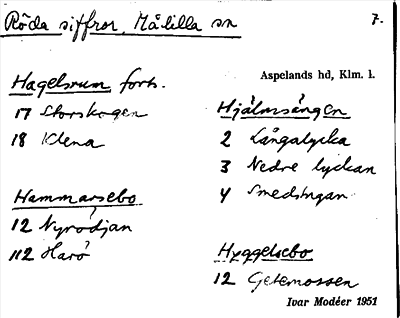 Röda siffror, Målilla sn
7.
Aspelands hd, Klm. l.
Hagelsrum forts.
17 Storskogen
18 Klena
Hammarsebo
12 Nyrödjan
112 Harö
Hjälmsängen
2 Långalycka
3 Nedre lyckan
4 Smedsängan
Hyggelsebo
12 Getemossen
Ivar Modéer 1951